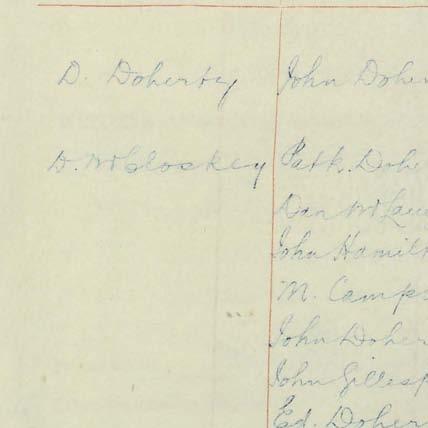 D. Doherty John Doher
D. McCloskey Patk. Dohe
Dan McLaug
John Hamilt
M. Camp
John Doher
John Gillesp
Ed. Doher